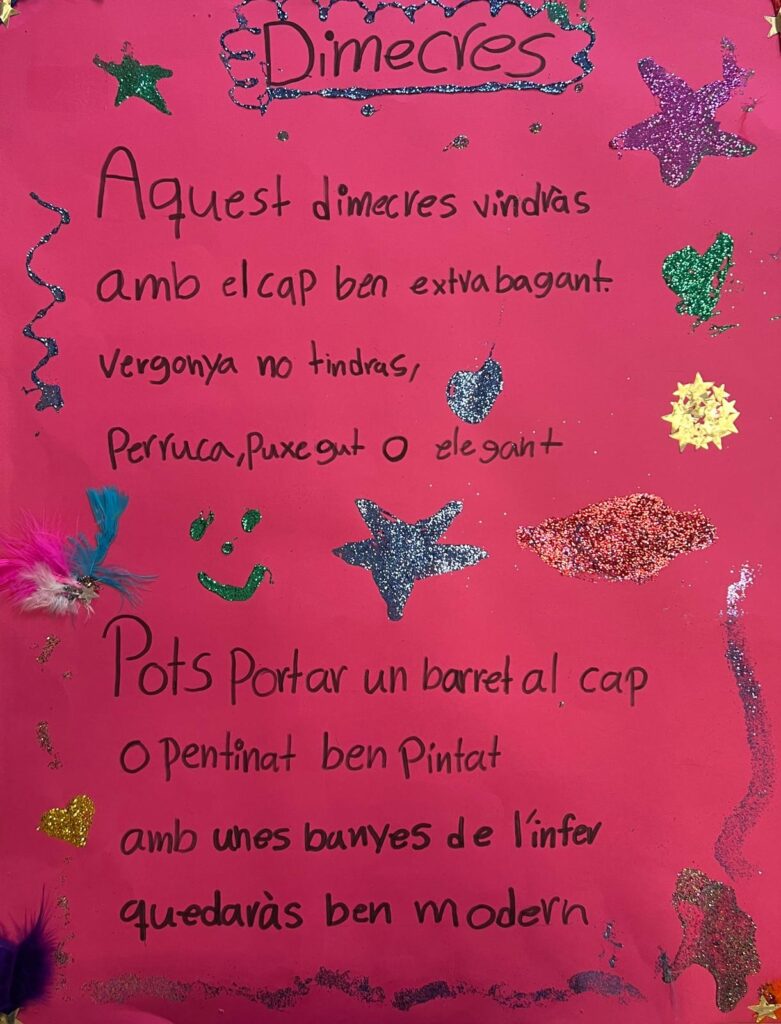 Dimecres
Aquest dimecres vindràs
amb el cap ben extrabagant.
vergonya no tindras,
Perruca, puxegut o elegant
Pots portar un barret al cap
o pentinat ben pintat
amb unes banyes de l'infer
quedaràs ben modern